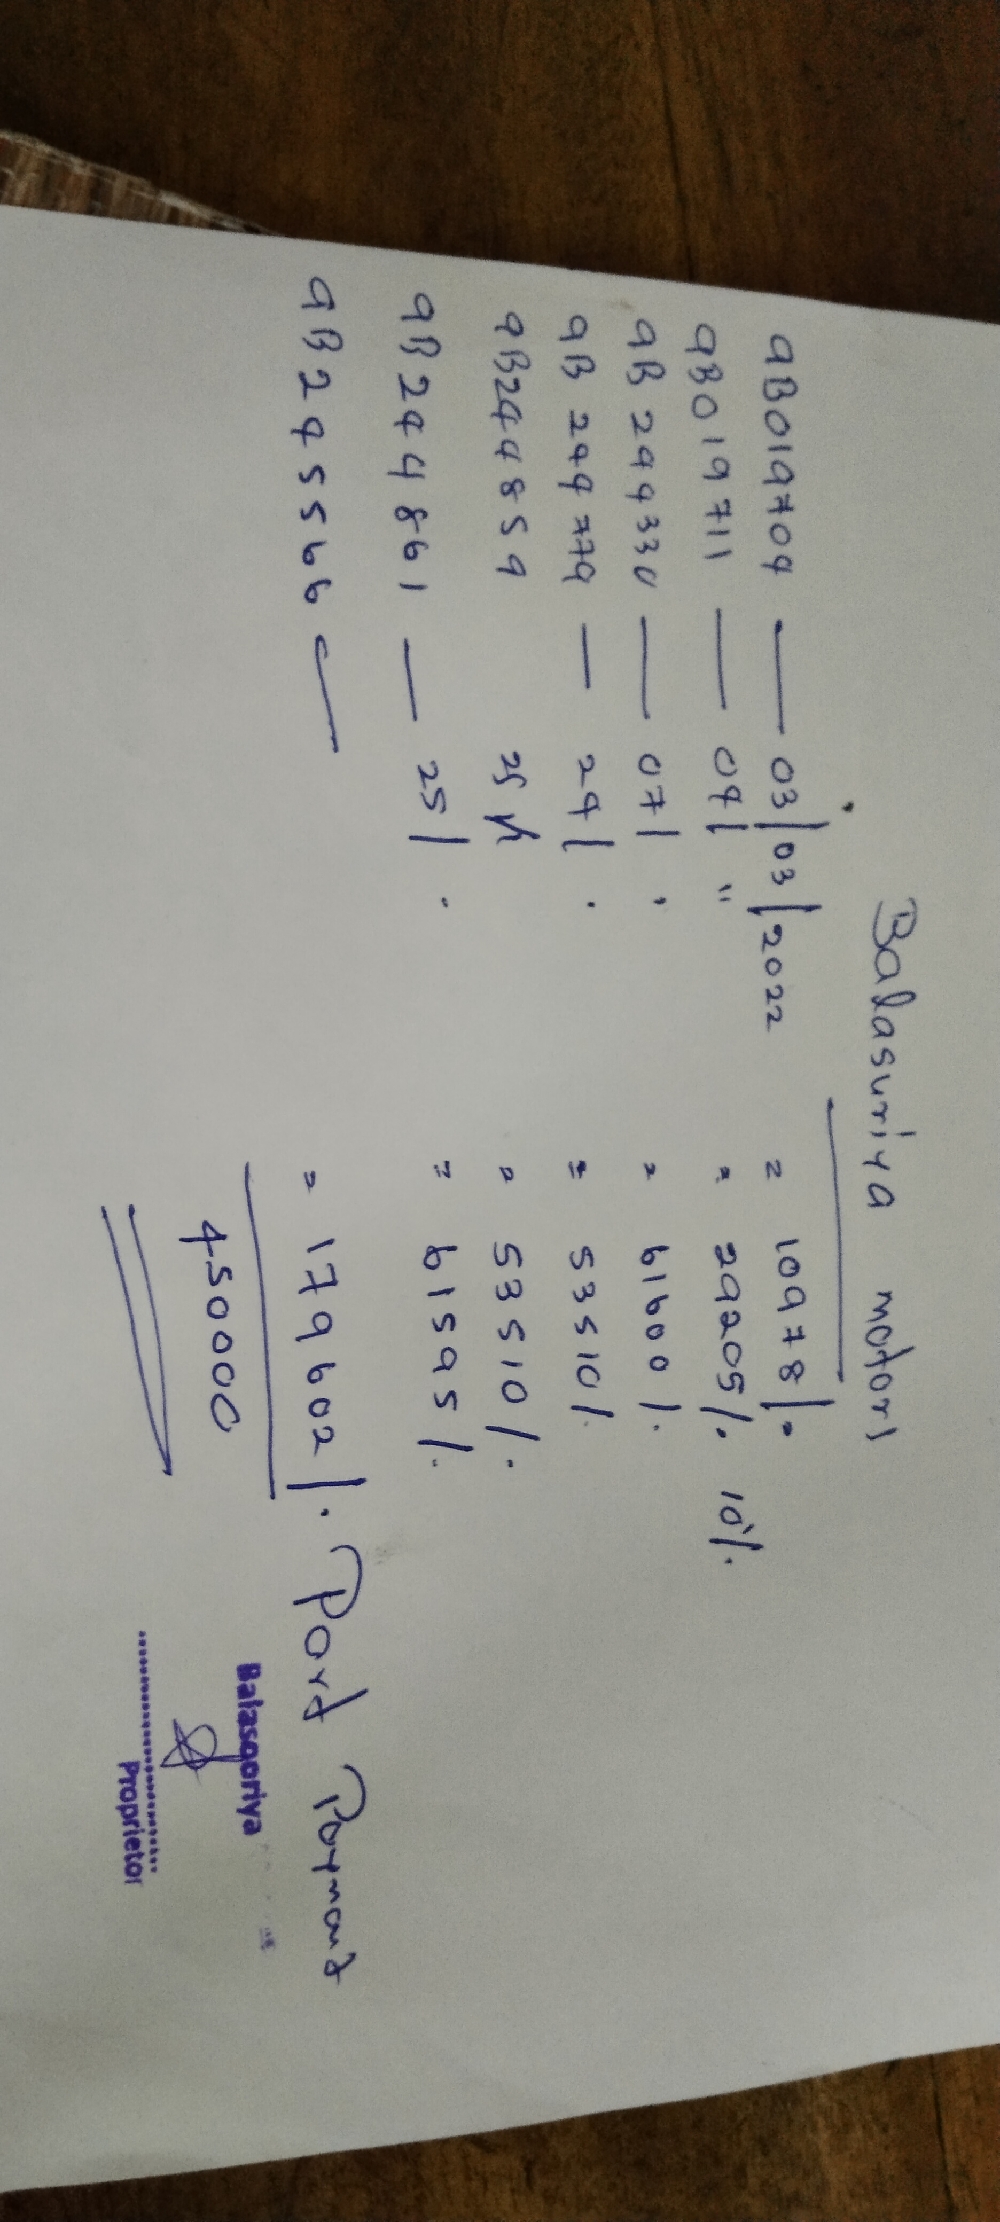 Balasuriya motors
9B019709 — 03/03/2022 = 10978/.
9B019711 — 04/ " = 29205/. 10%.
9B 244330 — 07/ . = 61600/.
9B 244779 — 24/ . = 53510/.
9B244859 25/ = 53510/.
9B244861 — 25/ . = 61595/.
9B245566 — = 179602/. Part Payment
450000
Balasooriya
Proprietor